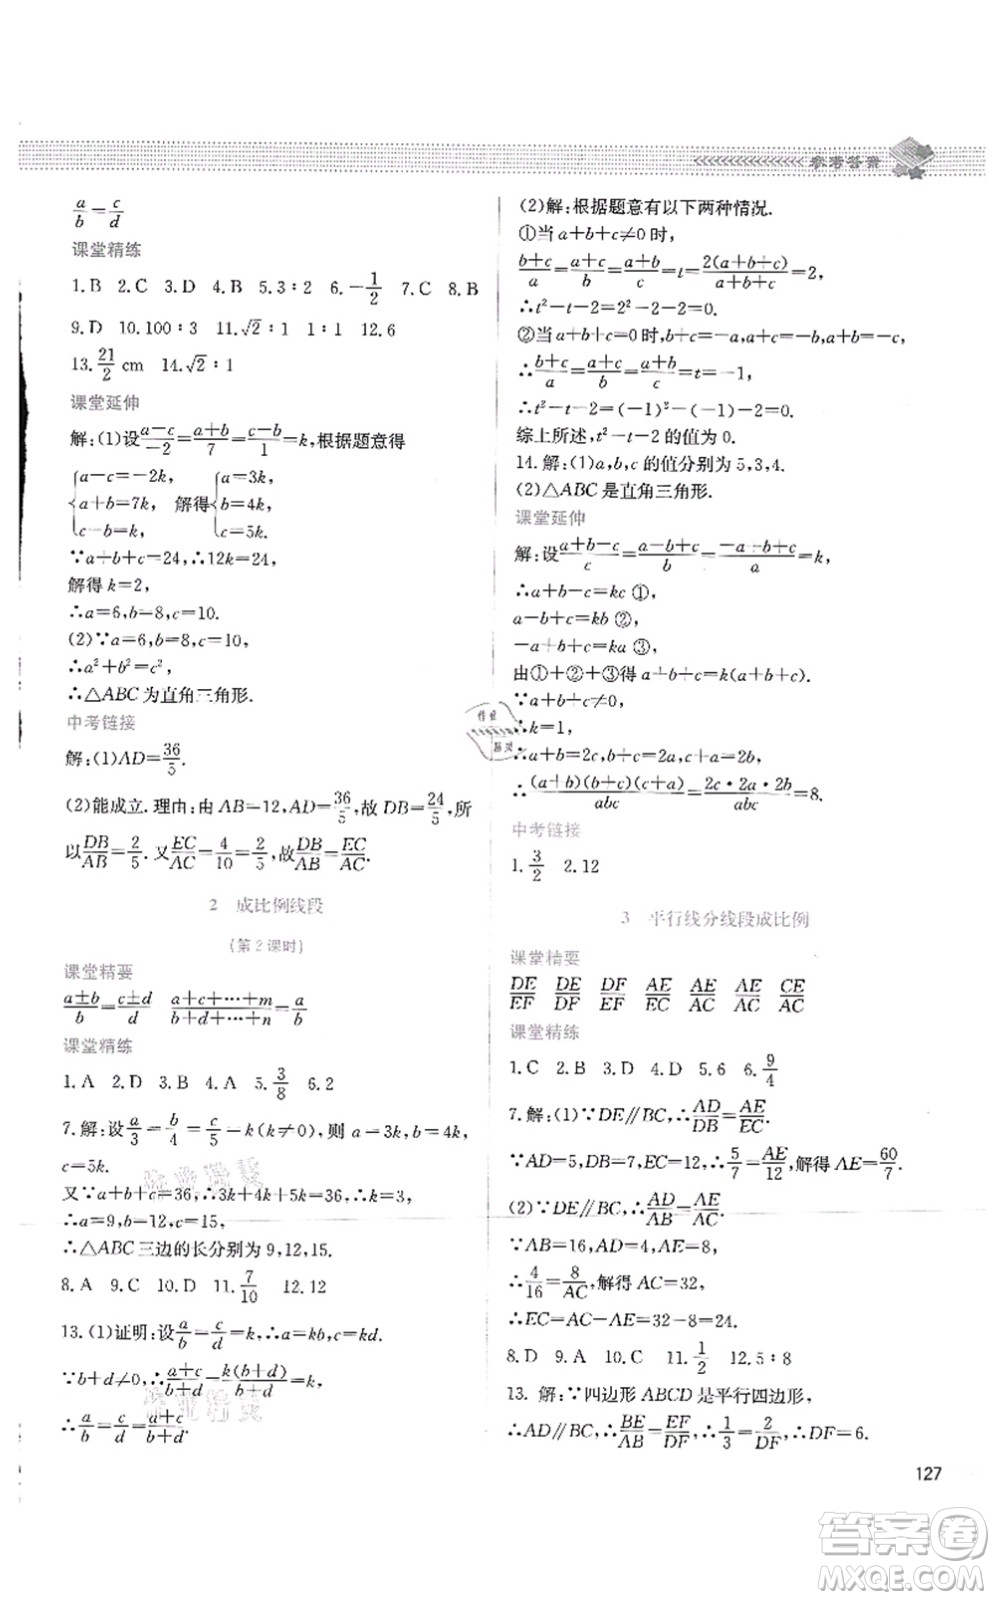 参考答案
a/b=c/d
课堂精练
1.B 2.C 3.D 4.B 5.3∶2 6.-1/2 7.C 8.B
9.D 10.100∶3 11.√2∶1 1∶1 12.6
13.21/2 cm 14.√2∶1
课堂延伸
解:(1)设(a-c)/-2=(a+b)/7=(c-b)/1=k,根据题意得
{a-c=-2k, {a=3k,
a+b=7k, 解得 b=4k,
c-b=k, c=5k.
∵a+b+c=24,∴12k=24,
解得k=2,
∴a=6,b=8,c=10.
(2)∵a=6,b=8,c=10,
∴a²+b²=c²,
∴△ABC为直角三角形.
中考链接
解:(1)AD=36/5.
(2)能成立.理由:由AB=12,AD=36/5,故DB=24/5,所
以DB/AB=2/5.又EC/AC=4/10=2/5,故DB/AB=EC/AC.
2 成比例线段
(第2课时)
课堂精要
(a±b)/b=(c±d)/d (a+c+…+m)/(b+d+…+n)=a/b
课堂精练
1.A 2.D 3.B 4.B 5.3/8 6.2
7.解:设a/3=b/4=c/5=k(k≠0),则a=3k,b=4k,
c=5k.
又∵a+b+c=36,∴3k+4k+5k=36,∴k=3,
∴a=9,b=12,c=15,
∴△ABC三边的长分别为9,12,15.
8.A 9.C 10.D 11.7/10 12.12
13.(1)证明:设a/b=c/d=k,∴a=kb,c=kd.
∵b+d≠0,∴(a+c)/(b+d)=k(b+d)/(b+d)=k,
∴a/b=c/d=(a+c)/(b+d).
(2)解:根据题意有以下两种情况.
①当a+b+c≠0时,
(b+c)/a=(a+c)/b=(a+b)/c=t=2(a+b+c)/(a+b+c)=2,
∴t²-t-2=2²-2-2=0.
②当a+b+c=0时,b+c=-a,a+c=-b,a+b=-c,
∴(b+c)/a=(a+c)/b=(a+b)/c=t=-1,
∴t²-t-2=(-1)²-(-1)-2=0.
综上所述,t²-t-2的值为0.
14.解:(1)a,b,c的值分别为5,3,4.
(2)△ABC是直角三角形.
课堂延伸
解:设(a+b-c)/c=(a-b+c)/b=(-a+b+c)/a=k,
∴a+b-c=kc①,
a-b+c=kb②,
-a+b+c=ka③,
由①+②+③得a+b+c=k(a+b+c).
∵a+b+c≠0,
∴k=1,
∴a+b=2c,b+c=2a,c+a=2b,
∴(a+b)(b+c)(c+a)/abc=2c·2a·2b/abc=8.
中考链接
1.3/2 2.12
3 平行线分线段成比例
课堂精要
DE/EF DE/DF DF/EF AE/AC AE/AC AE/AC CE/AC
课堂精练
1.C 2.B 3.D 4.D 5.6 6.9/4
7.解:(1)∵DE∥BC,∴AD/DB=AE/EC.
∵AD=5,DB=7,EC=12,∴5/7=AE/12,解得AE=60/7.
(2)∵DE∥BC,∴AD/AB=AE/AC.
∵AB=16,AD=4,AE=8,
∴4/16=8/AC,解得AC=32,
∴EC=AC-AE=32-8=24.
8.D 9.A 10.C 11.1/2 12.5∶8
13.解:∵四边形ABCD是平行四边形,
∴AD∥BC,∴BE/AB=EF/DF,∴1/3=2/DF,∴DF=6.
127
答案卷
MXQE.COM